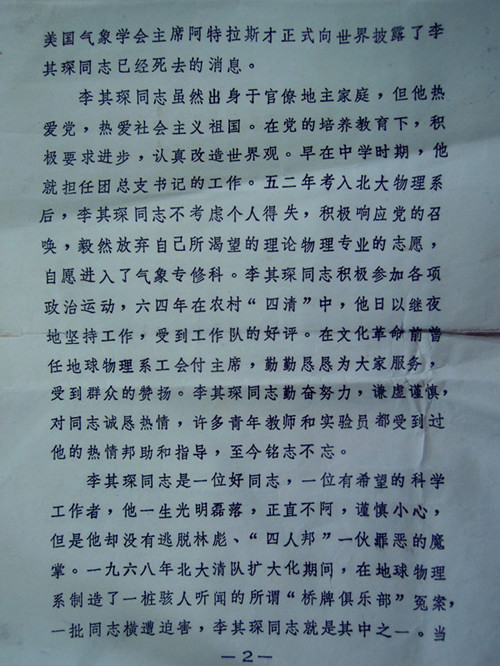 美国气象学会主席阿特拉斯才正式向世界披露了李
其琛同志已经死去的消息。
李其琛同志虽然出身于官僚地主家庭，但他热
爱党，热爱社会主义祖国。在党的培养教育下，积
极要求进步，认真改造世界观。早在中学时期，他
就担任团总支书记的工作。五二年考入北大物理系
后，李其琛同志不考虑个人得失，积极响应党的召
唤，毅然放弃自己所渴望的理论物理专业的志愿，
自愿进入了气象专修科。李其琛同志积极参加各项
政治运动，六四年在农村“四清”中，他日以继夜
地坚持工作，受到工作队的好评。在文化革命前曾
任地球物理系工会付主席，勤勤恳恳为大家服务，
受到群众的赞扬。李其琛同志勤奋努力，谦虚谨慎，
对同志诚恳热情，许多青年教师和实验员都受到过
他的热情邦助和指导，至今铭志不忘。
李其琛同志是一位好同志，一位有希望的科学
工作者，他一生光明磊落，正直不阿，谨慎小心，
但是他却没有逃脱林彪、“四人邦”一伙罪恶的魔
掌。一九六八年北大清队扩大化期间，在地球物理
系制造了一桩骇人听闻的所谓“桥牌俱乐部”冤案，
一批同志横遭迫害，李其琛同志就是其中之一。当
—2—